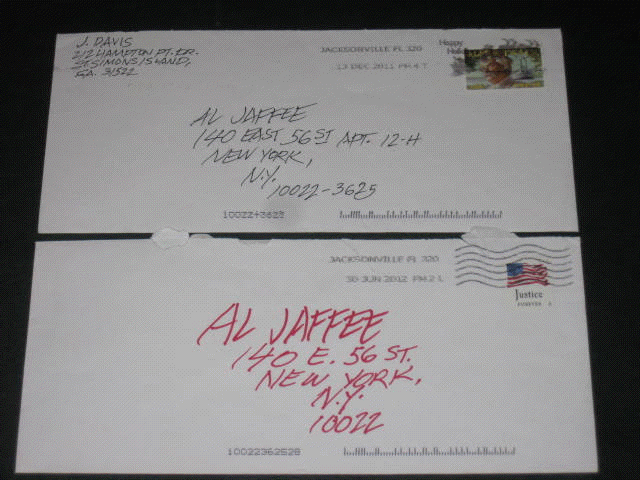 J. DAVIS
212 HAMPTON PT. DR.
ST. SIMONS ISLAND,
GA. 31522
JACKSONVILLE FL 320
13 DEC 2011 PM 4 T
Happy
AL JAFFEE
140 EAST 56 ST APT. 12-H
NEW YORK,
N.Y.
10022-3625
10022+3628
JACKSONVILLE FL 320
30 JUN 2012 PM 2 L
Justice
FOREVER
AL JAFFEE
140 E. 56 ST.
NEW YORK,
N.Y.
10022
10022362528